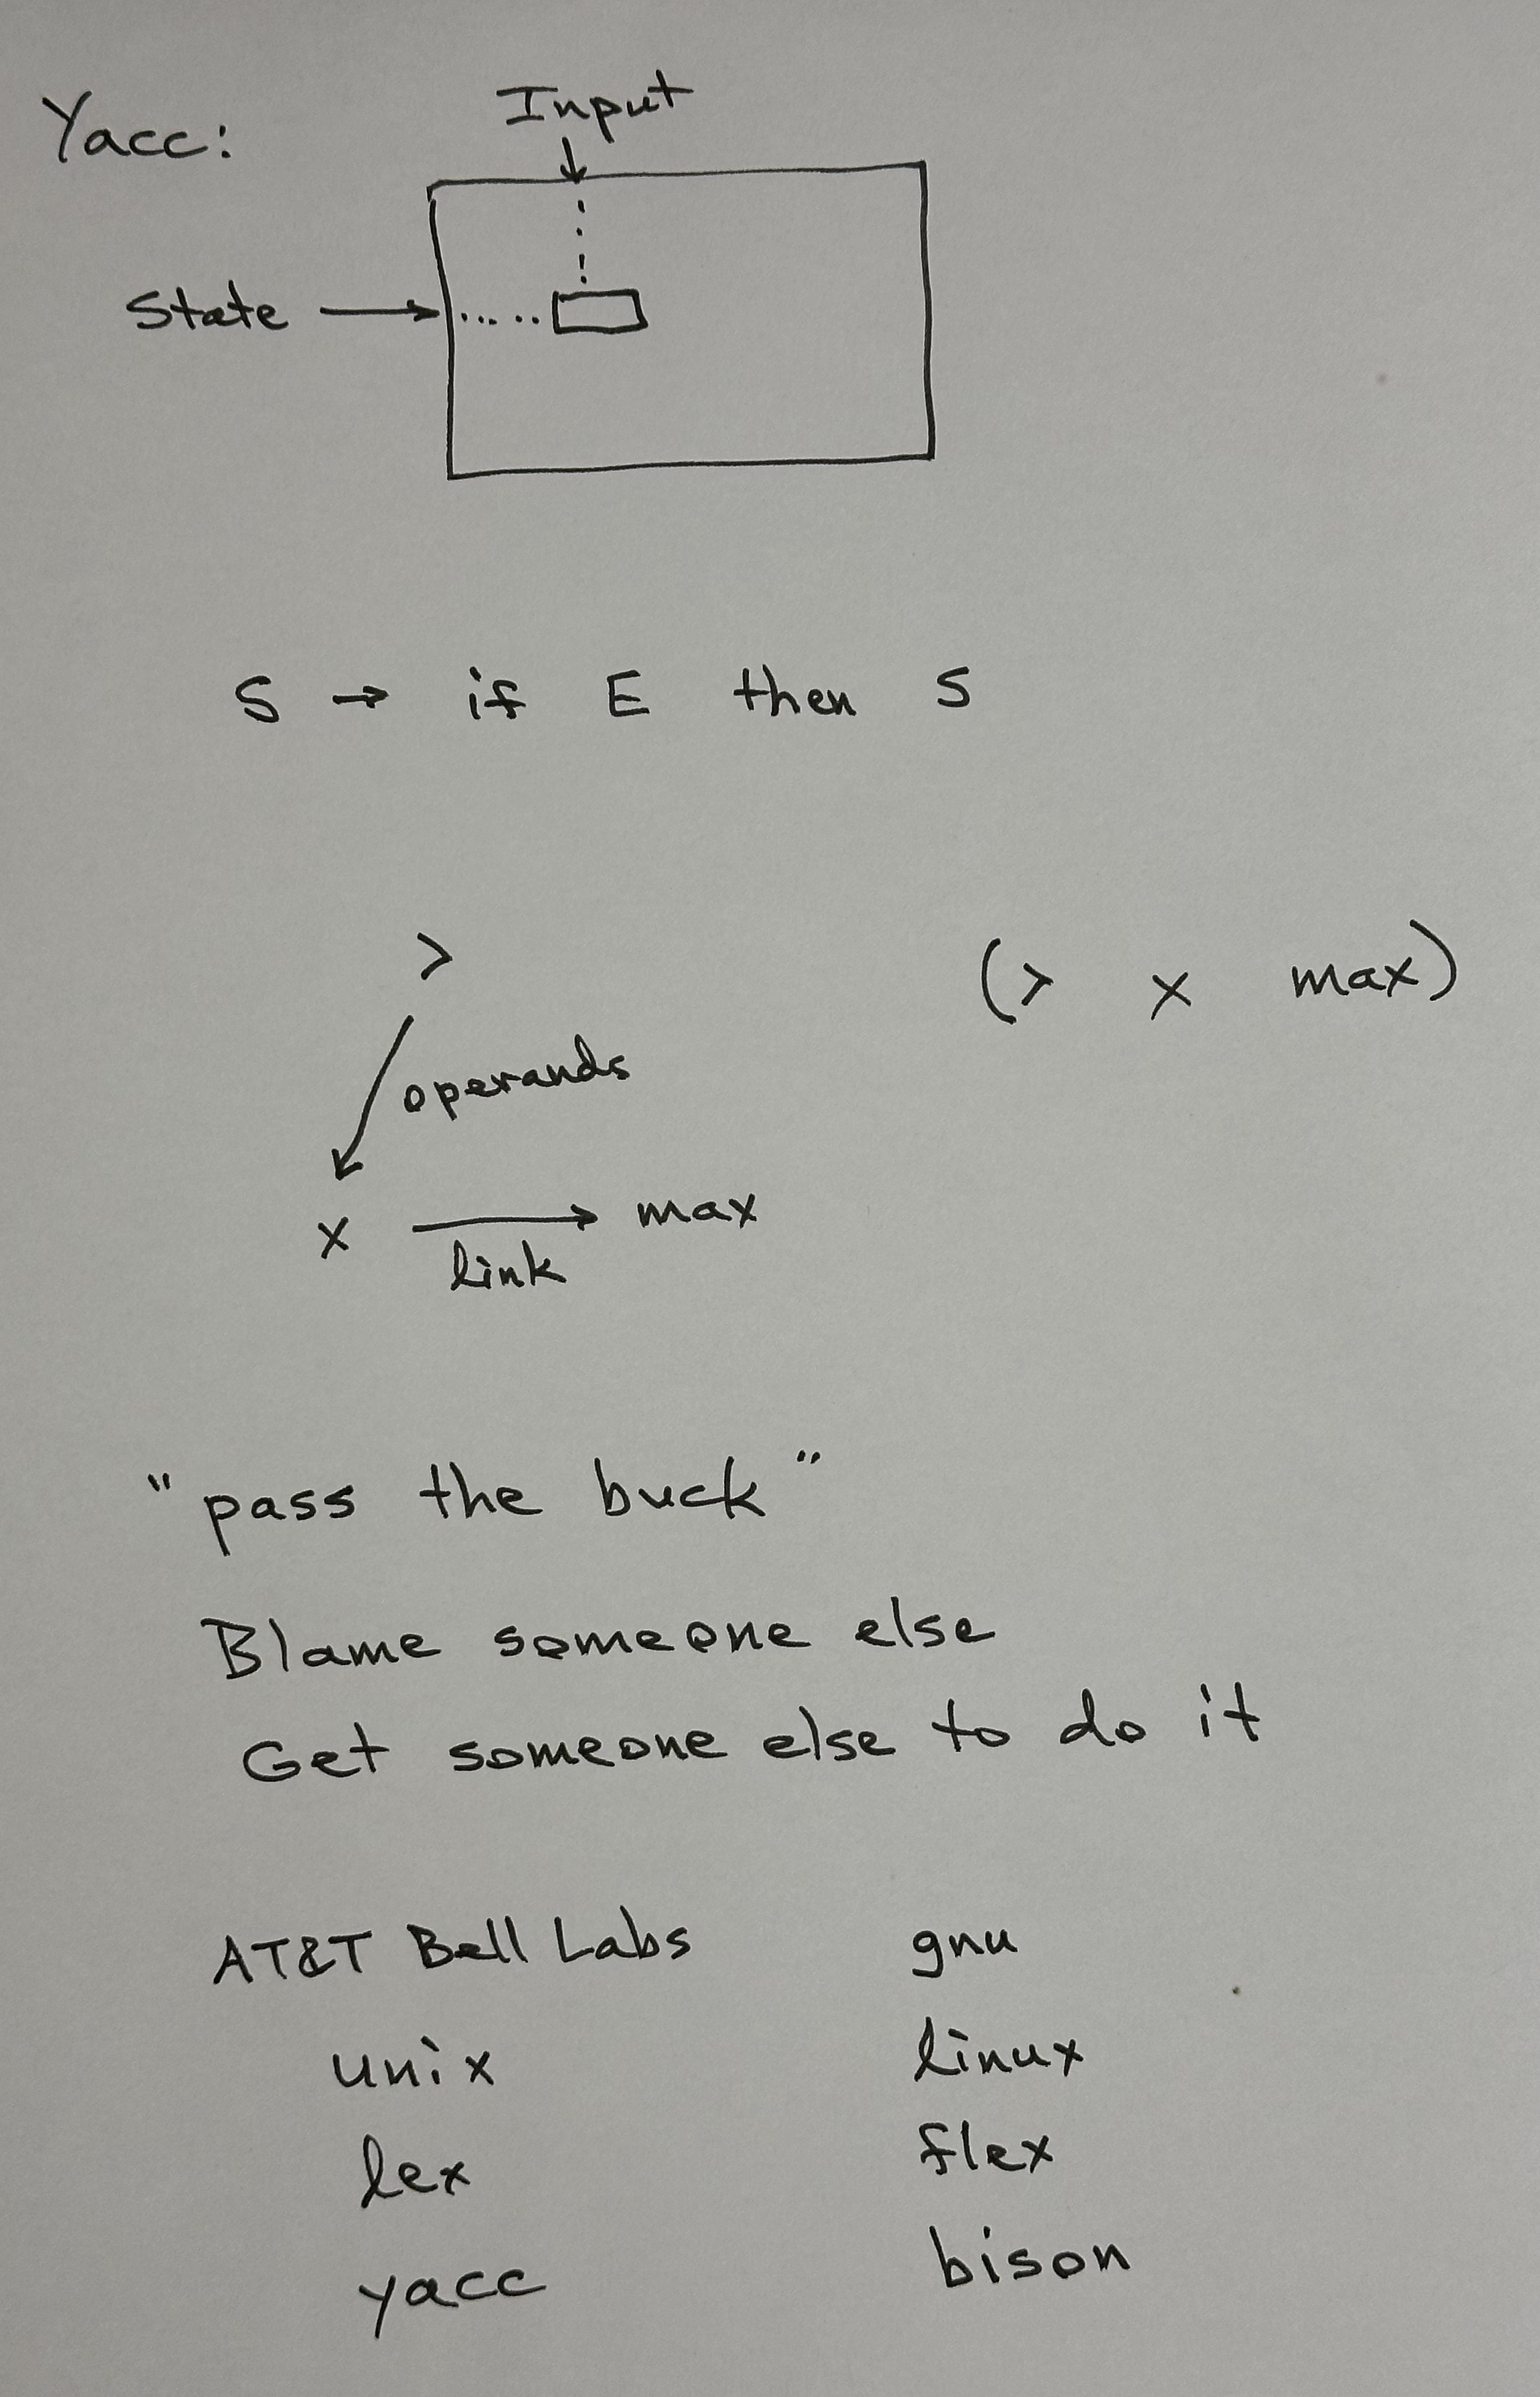 Yacc: Input
State
S → if E then S
> (> x max)
operands
x → max
link
"pass the buck"
Blame someone else
Get someone else to do it
AT&T Bell Labs gnu
unix linux
lex flex
yacc bison